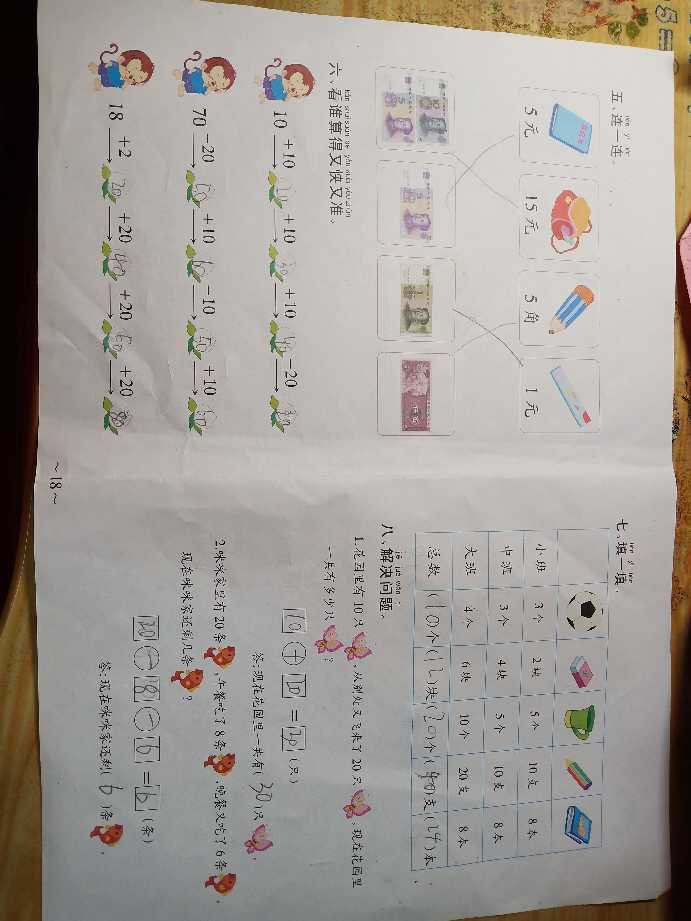 五、连一连。
5元 15元 5角 1元
六、看谁算得又快又准。
10 +10 20 +10 30 +10 40 -20 20
70 -20 50 +10 60 -10 50 +10 60
18 +2 20 +20 40 +20 60 +20 80
~18~
七、填一填。
小班 3个 2块 5个 10支 8本
中班 3个 4块 5个 10支 8本
大班 4个 6块 10个 20支 8本
总数 (10)个 (12)块 (20)个 (40)支 (24)本
八、解决问题。
1.花园里有10只，从别处又飞来了20只，现在花园里
一共有多少只？
10 + 20 = 30 (只)
答:现在花园里一共有(30)只。
2.咪咪家里有20条，午餐吃了8条，晚餐又吃了6条，
现在咪咪家还剩几条？
20 - 8 - 6 = 6 (条)
答:现在咪咪家还剩(6)条。